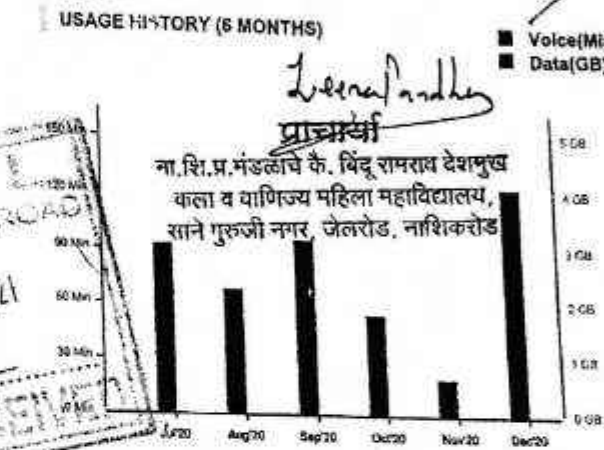 USAGE HISTORY (6 MONTHS)
Voice(Mi
Data(GB)
प्राचार्या
ना.शि.प्र.मंडळाचे कै. बिंदू रामराव देशमुख
कला व वाणिज्य महिला महाविद्यालय,
साने गुरुजी नगर, जेलरोड, नाशिकरोड
150 Min
120 Min
90 Min
60 Min
30 Min
0 Min
5 GB
4 GB
3 GB
2 GB
1 GB
0 GB
Jul'20 Aug'20 Sep'20 Oct'20 Nov'20 Dec'20
ROAD